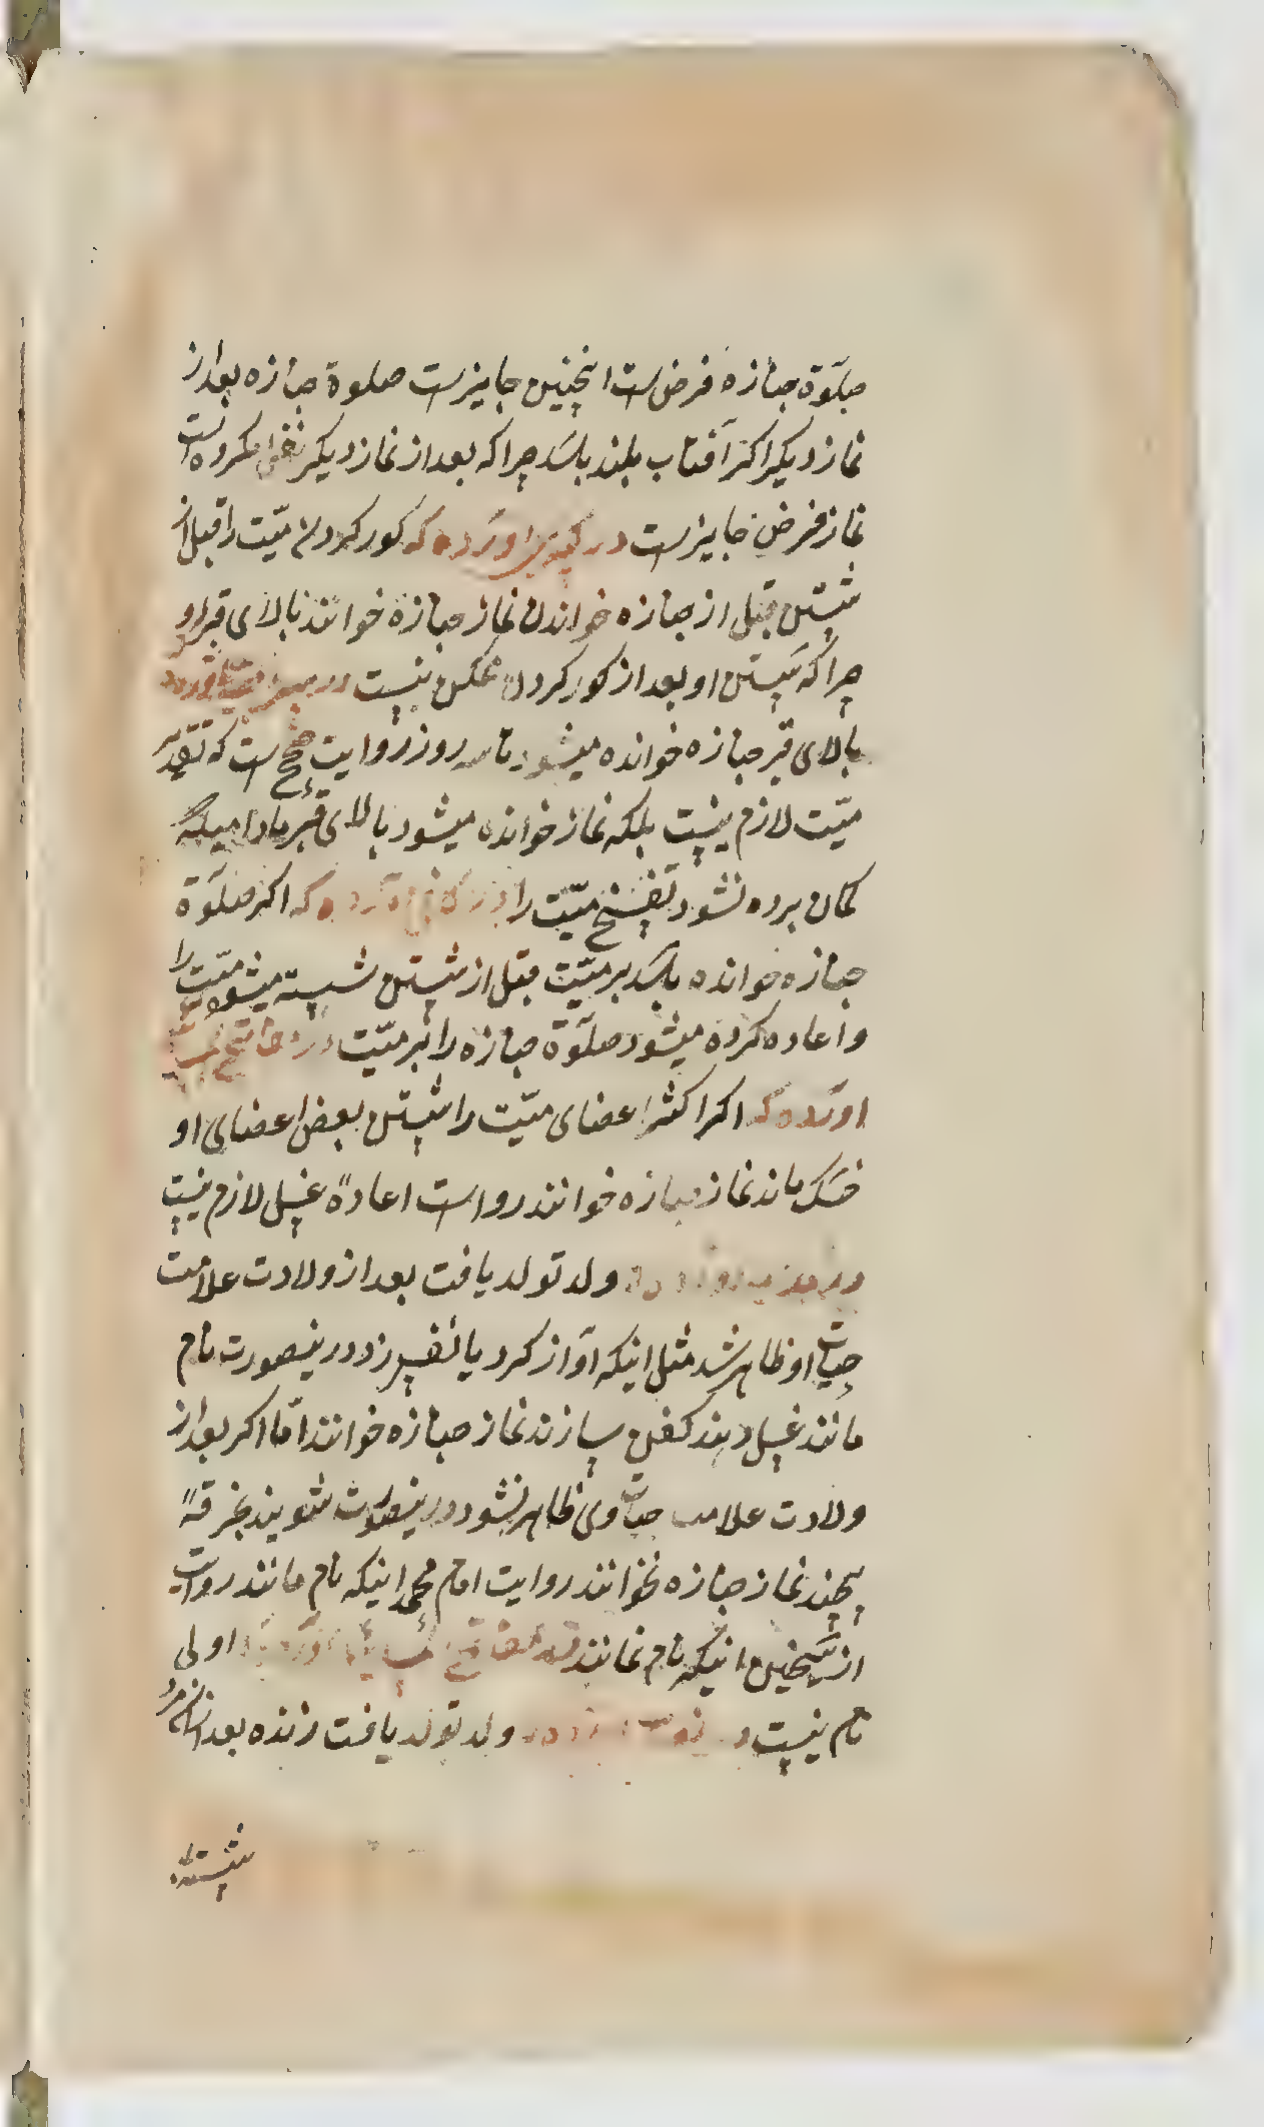 صلوة جنازه فرض است اینچنین جایز است صلوة جنازه بعد از
نماز دیکر اکر آفتاب بلند باشد چرا که بعد از نماز دیکر نفل مکروه است
نماز فرض جایز است در کبیری اورده که کور کردن میّت را قبل از
شستن قبل از جنازه خواندن نماز جنازه خوانند بالای قبر او
چرا که شستن او بعد از کور کردن ممکن نیست در
بالای قبر جنازه خوانده میشود تا سه روز روایت صحیح است که تقدیر
میّت لازم نیست بلکه نماز خوانده میشود بالای قبر مادامیکه
کمان برده نشود تفسخ میّت را در کافی اورده که اکر صلوة
جنازه خوانده باشد بر میّت قبل از شستن شسته میشود میّت را
و اعاده کرده میشود صلوة جنازه را بر میّت در
اورده که اکر اکثر اعضای میّت را شستن بعض اعضای او
خشک ماند نماز جنازه خوانند روا است اعادهٔ غسل لازم نیست
ولد تولد یافت بعد از ولادت علامت
حیات او ظاهر شد مثل اینکه آواز کرد یا نفس زد درینصورت نام
مانند غسل دهند کفن سازند نماز جنازه خوانند امّا اکر بعد از
ولادت علامت حیات وی ظاهر نشود درینصورت شویند بخرقهٔ
پیچند نماز جنازه نخوانند روایت امام محمد اینکه نام مانند روایت
از شیخین اینکه نام نمانند اولی
نام نیست در ولد تولد یافت زنده بعد از آن مرد
شسته